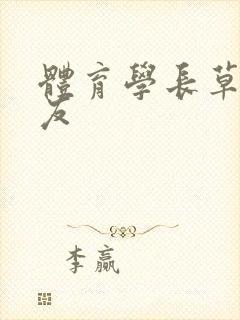 體育學長草
友
李赢